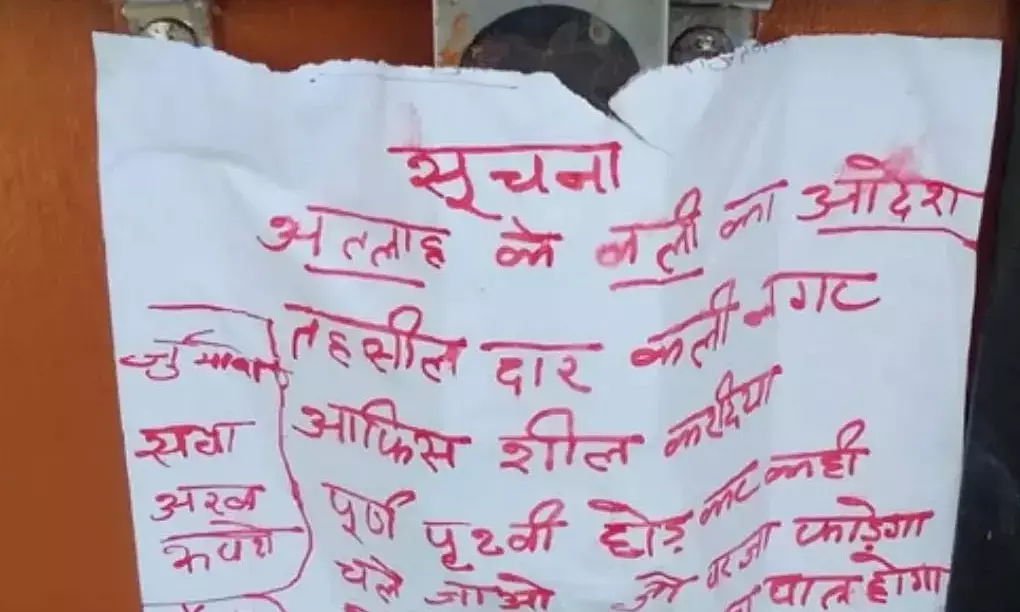 सूचना
अल्लाह के कली का आदेश
तहसील दार कली नगर
आफिस शील करदिया
पूर्ण पृथ्वी छोड़ कर कही
चले जाओ जो परजा फाड़ेगा
पात्र होगा
जुर्माना
सवा
अरब
रूपये